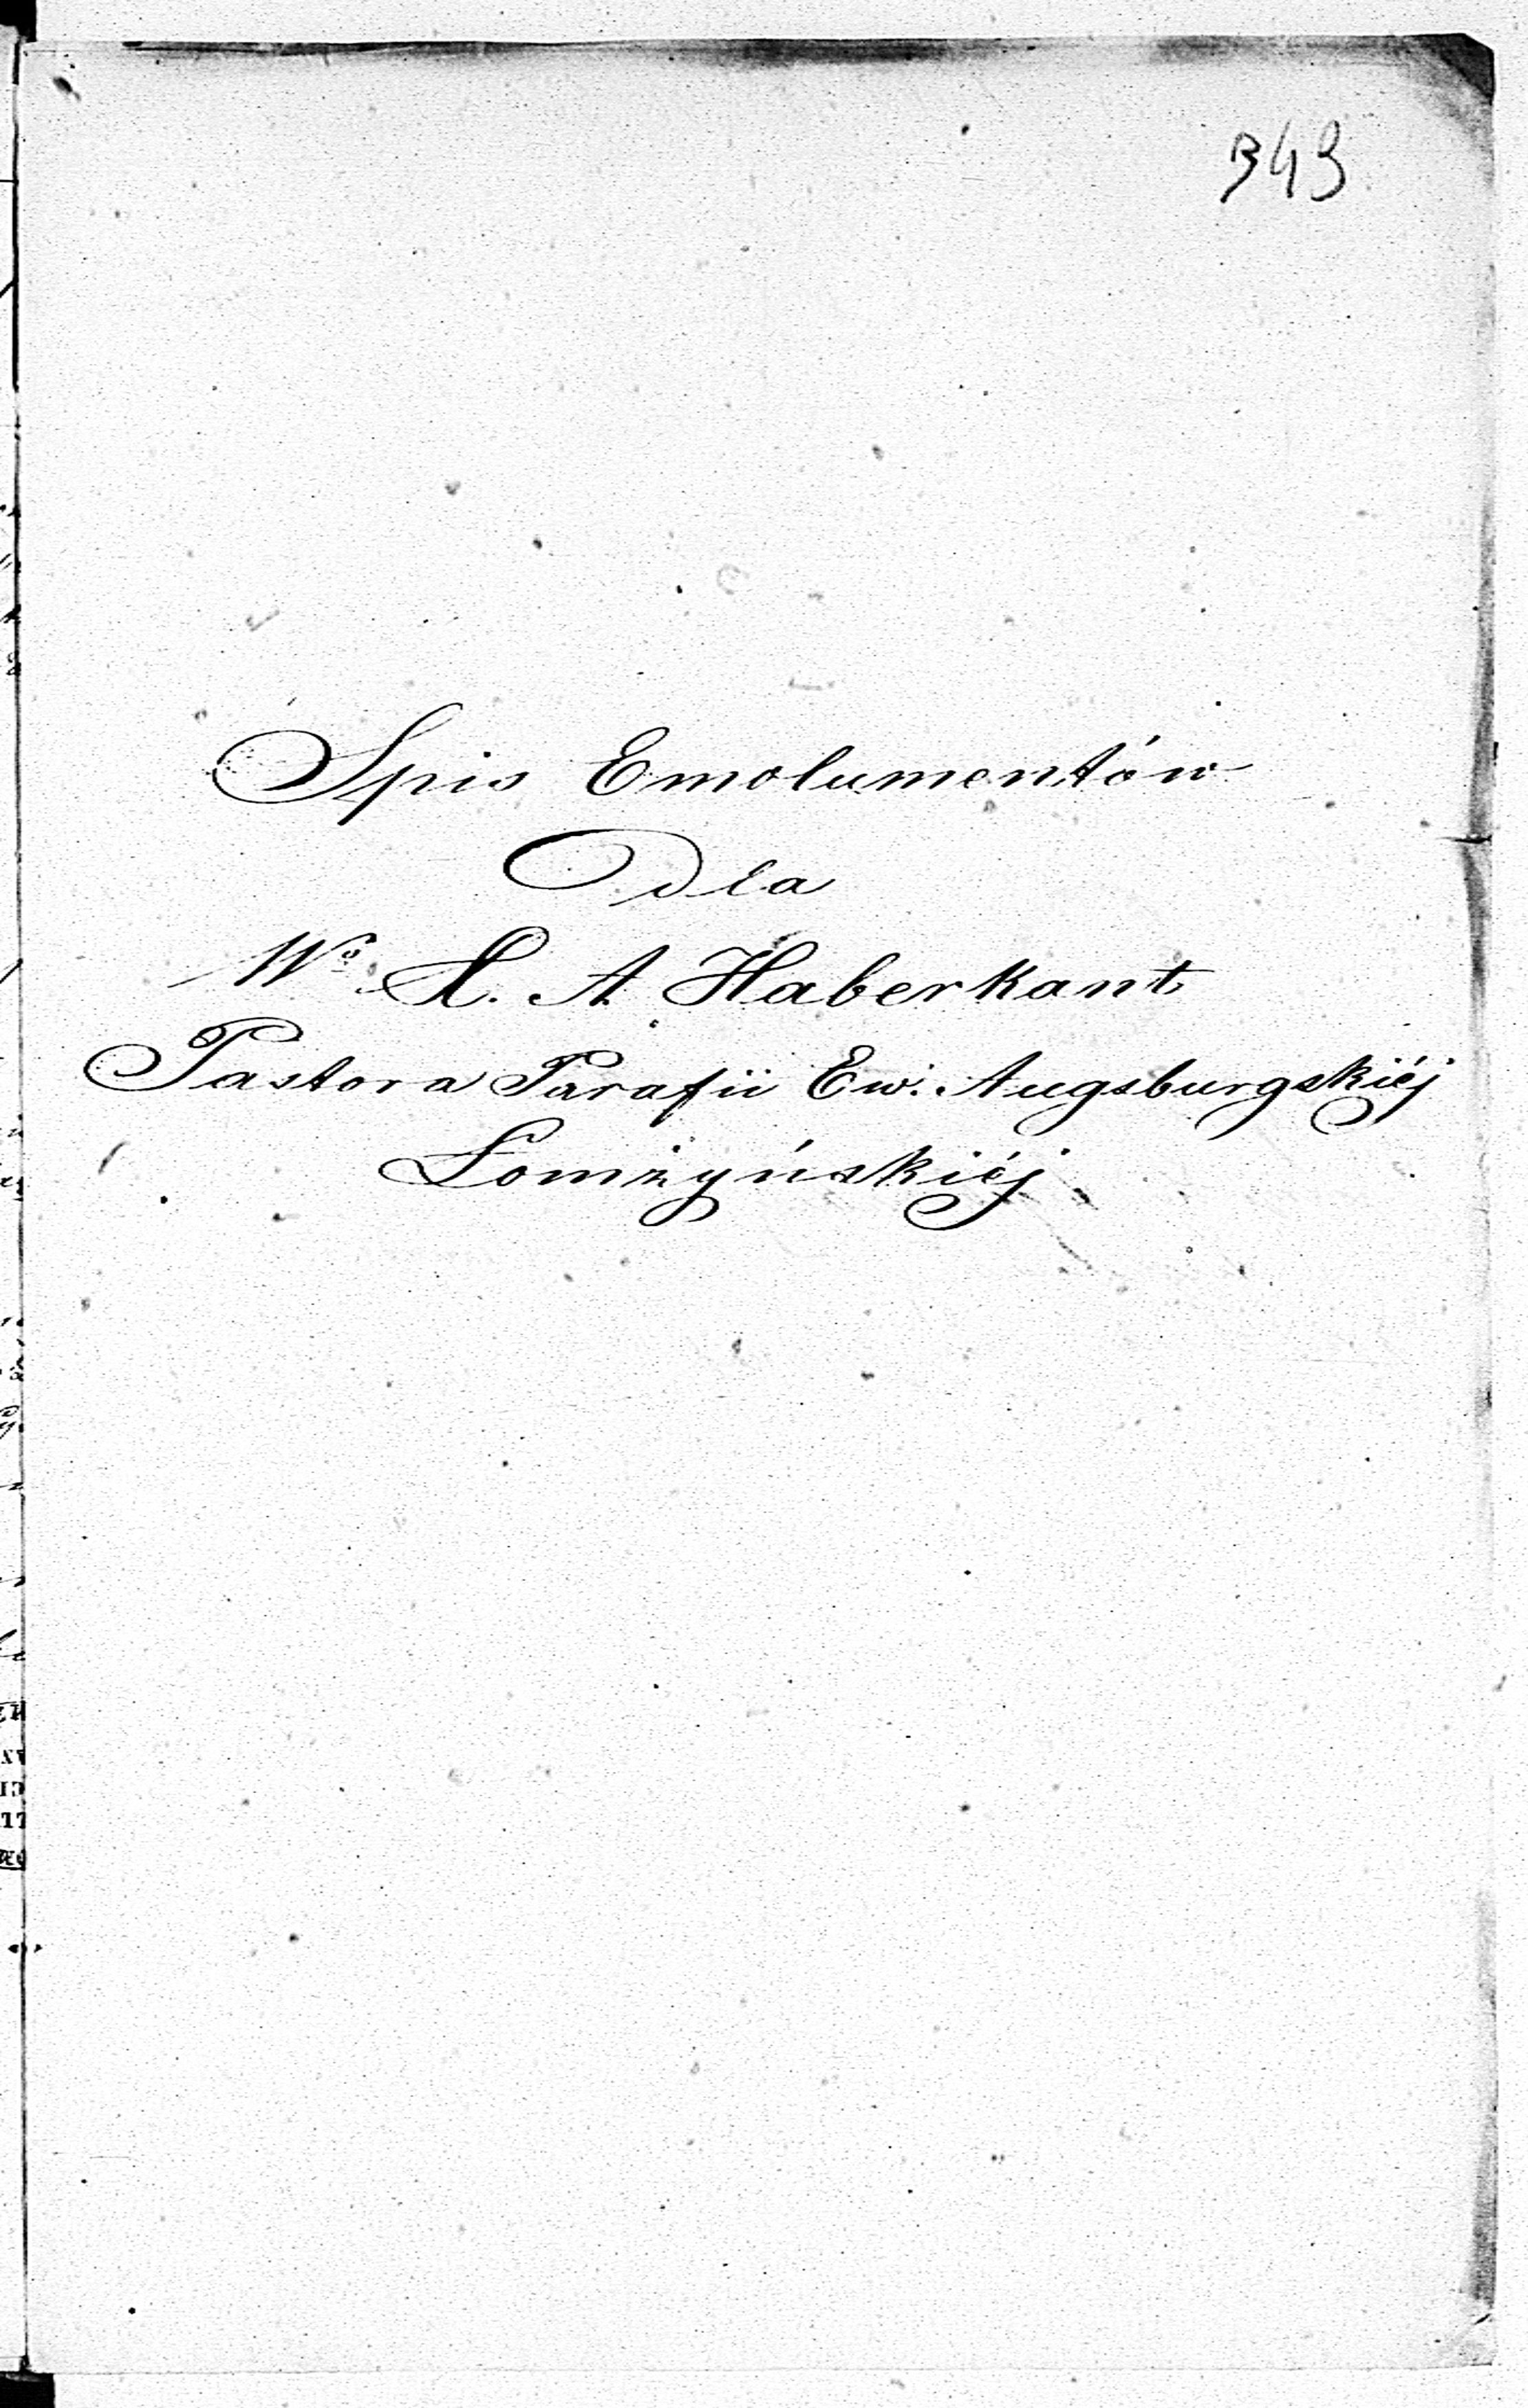 343
Spis Emolumentów
Dla
Wo X. A Haberkant
Pastora Parafii Ew. Augsburgskiéj
Łomżyńskiéj